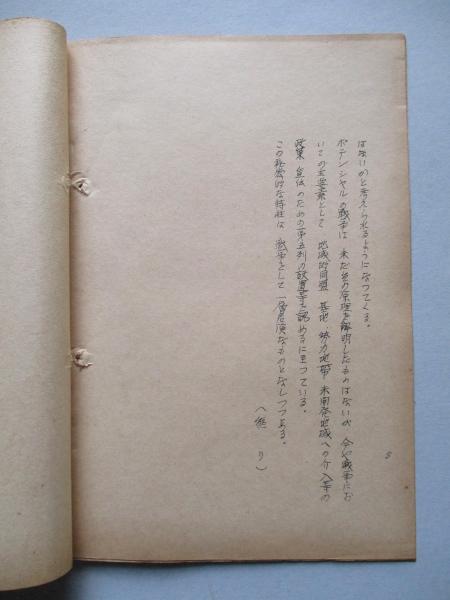 はないかと考えられるようになつてくる。
ポテンシャルの戦争は、未だ其の原理を解明したものはないが、今や戦争にお
いての主要素として、地域的同盟、基地、勢力地帯、未開発地域への介入等の
政策、宣伝のための第五列の設置等を認めるに至つている。
この秘密的な特性は、戦争をして一層広汎なものとなしつつある。
（続 り）
5